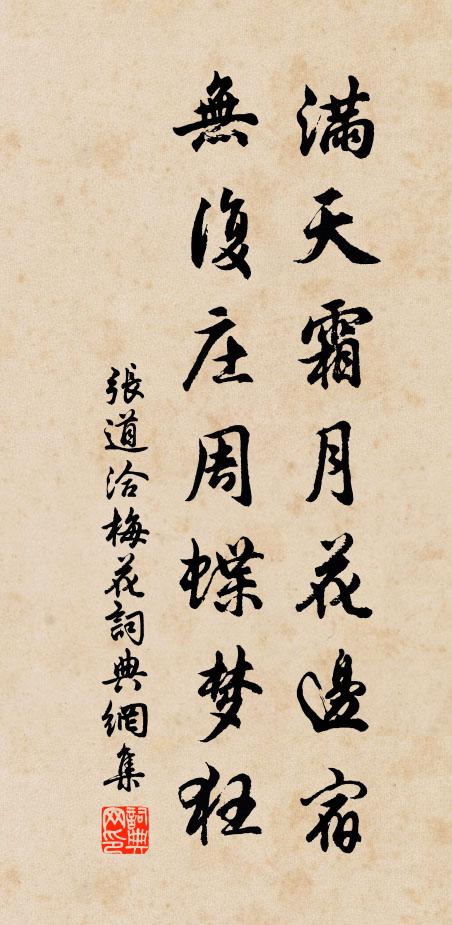 滿天霜月花邊宿
無復庄周蝶梦狂
張道洽梅花詞典網集
詞典网印